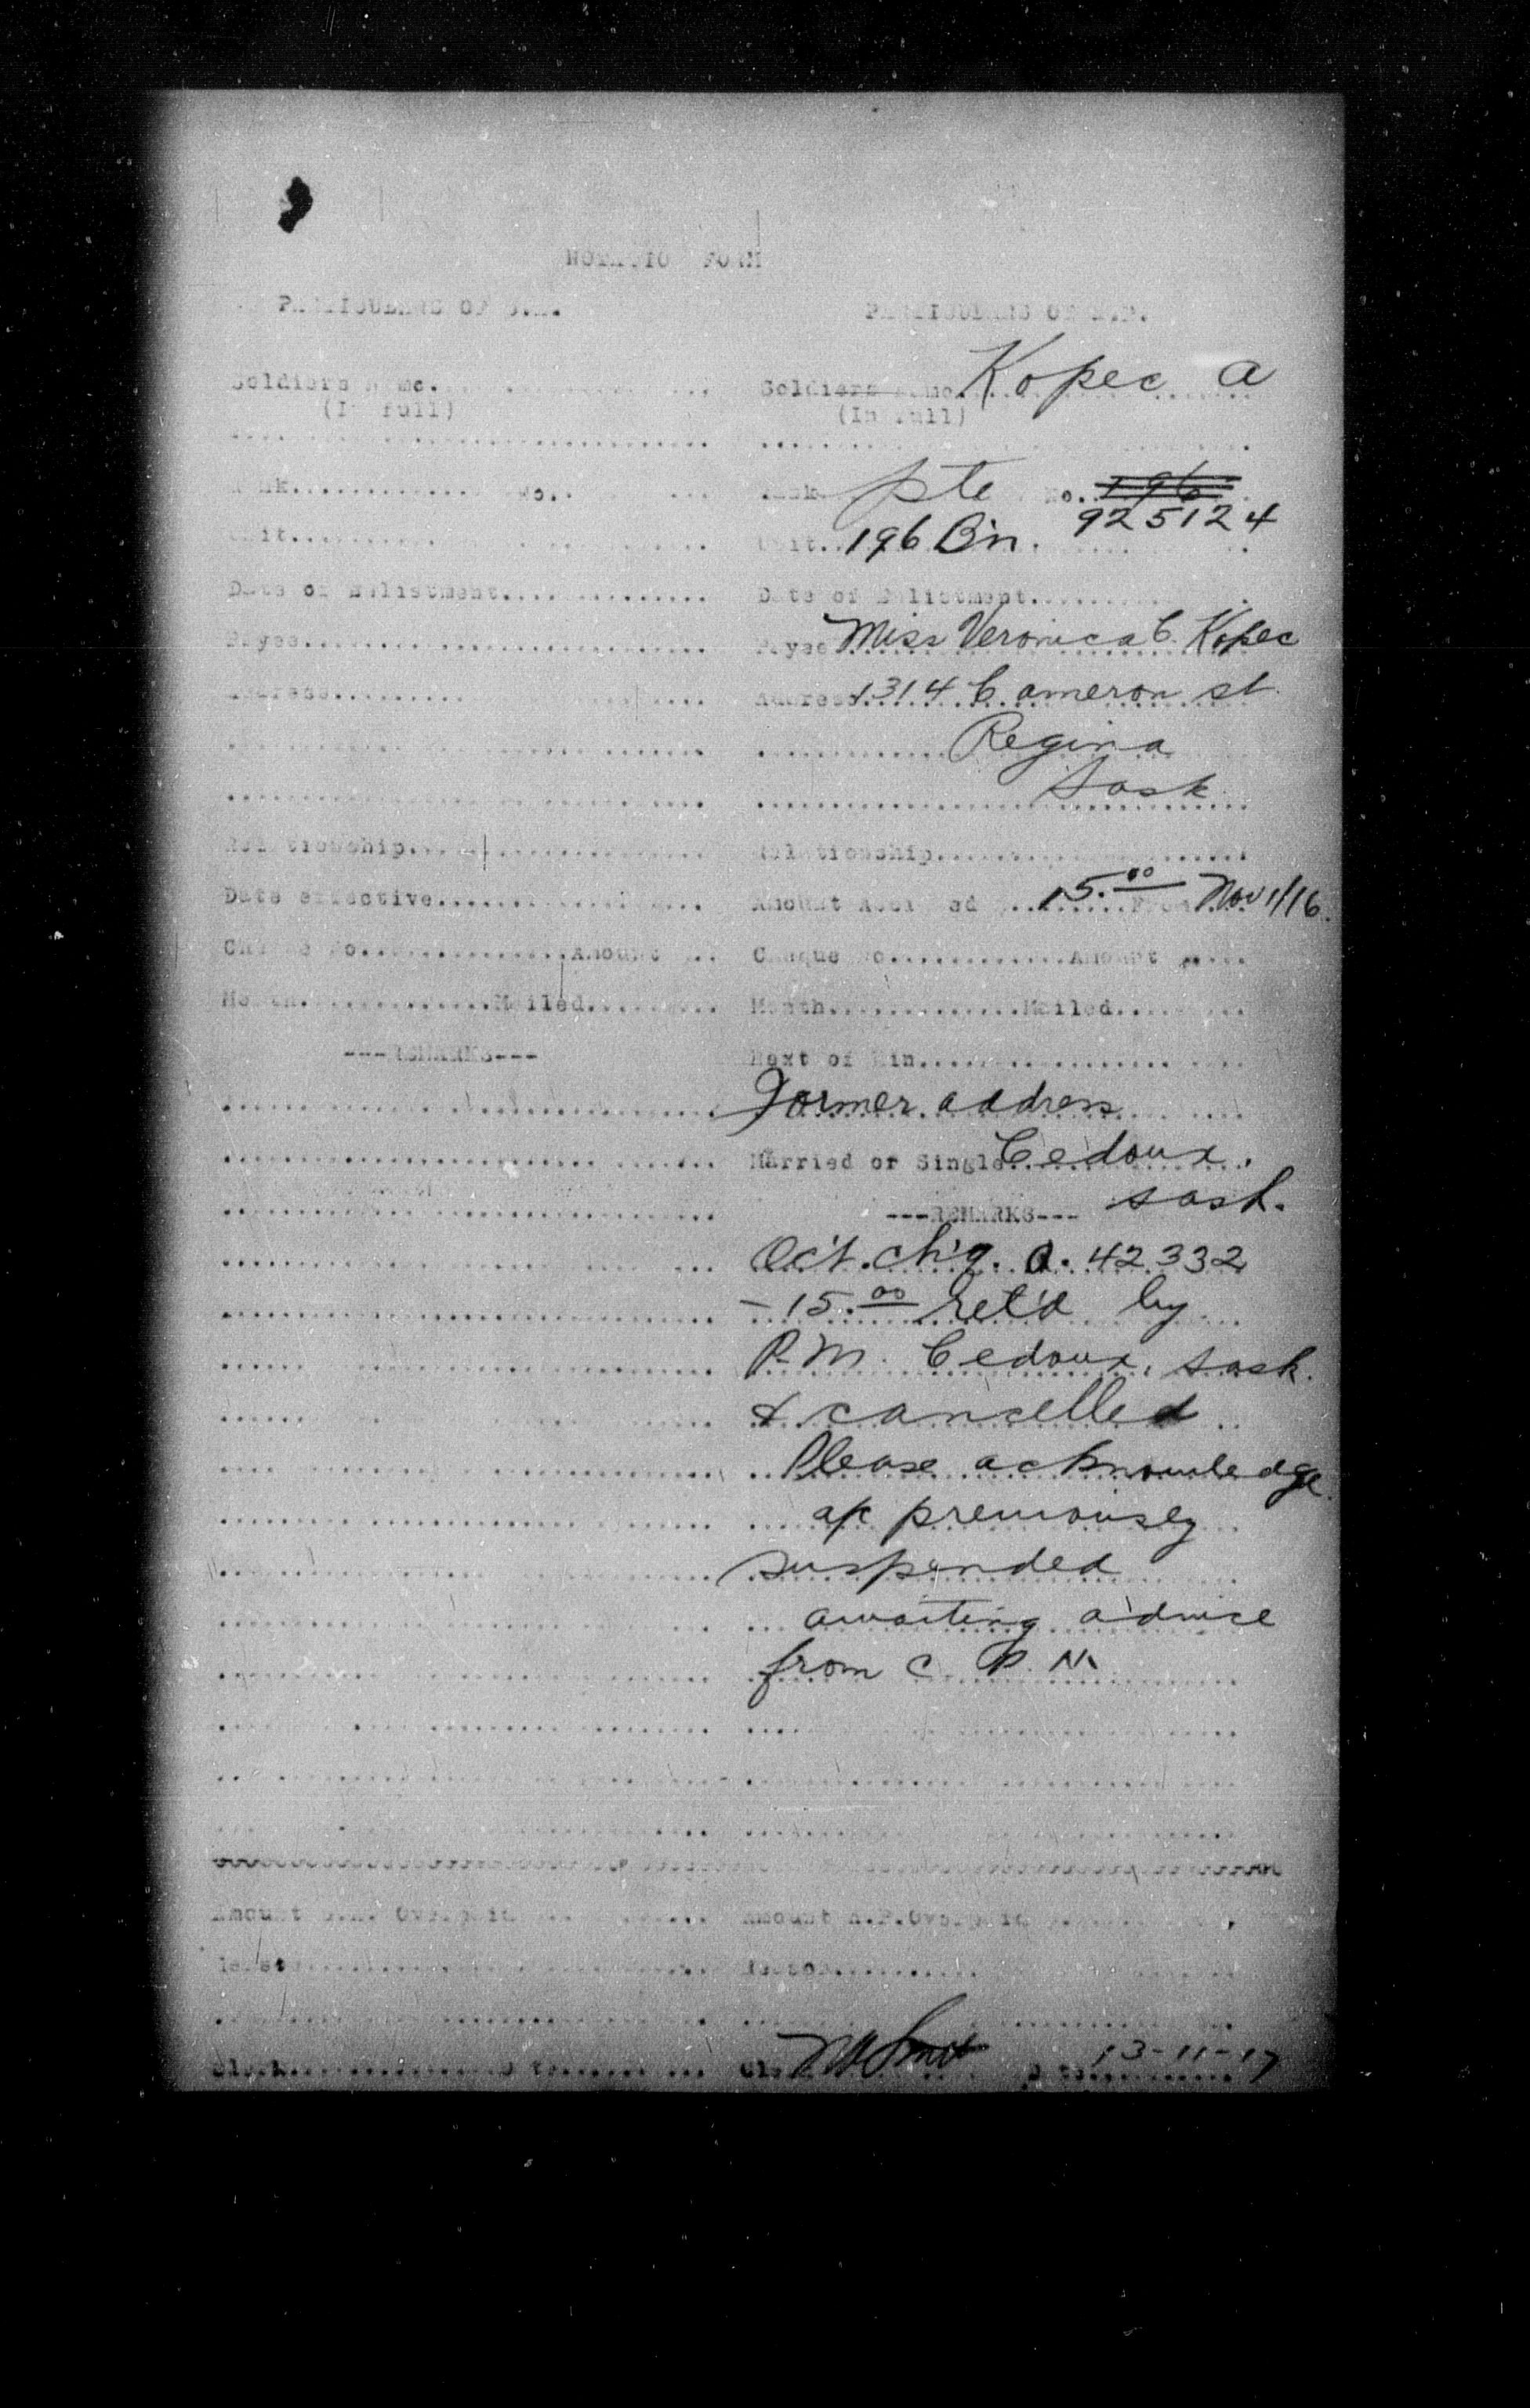 NOTATIO FORM
PARTICULARS OF S.A.
PARTICULARS OF A.P.
Soldiers Name.
Soldiers Name Kopec A
(In full)
(In full)
Rank No.
Rank pte No. 196
925124
Unit
Unit 196 Bn.
Date of Enlistment
Date of Enlistment
Payee
Payee Miss Veronica C. Kopec
Address
Address 1314 Cameron st
Regina
Sask
Relationship
Relationship
Date effective
Amount Assigned 15.00 From Nov 1/16.
Cheque No. Amount
Cheque No. Amount
Month Mailed
Month Mailed
---REMARKS---
Next of Kin
Former address
Married or Single Cedoux,
---REMARKS--- Sask.
Oct. ch'q. a. 42332
- 15.00 ret'd by
P.M. Cedoux, Sask.
& cancelled
Please acknowledge
a/c previously
suspended
awaiting advice
from C. P. N.
Amount S.A. Overpaid
Amount A.P. Overpaid
Reason
Clerk Date
Clerk Date 13-11-17